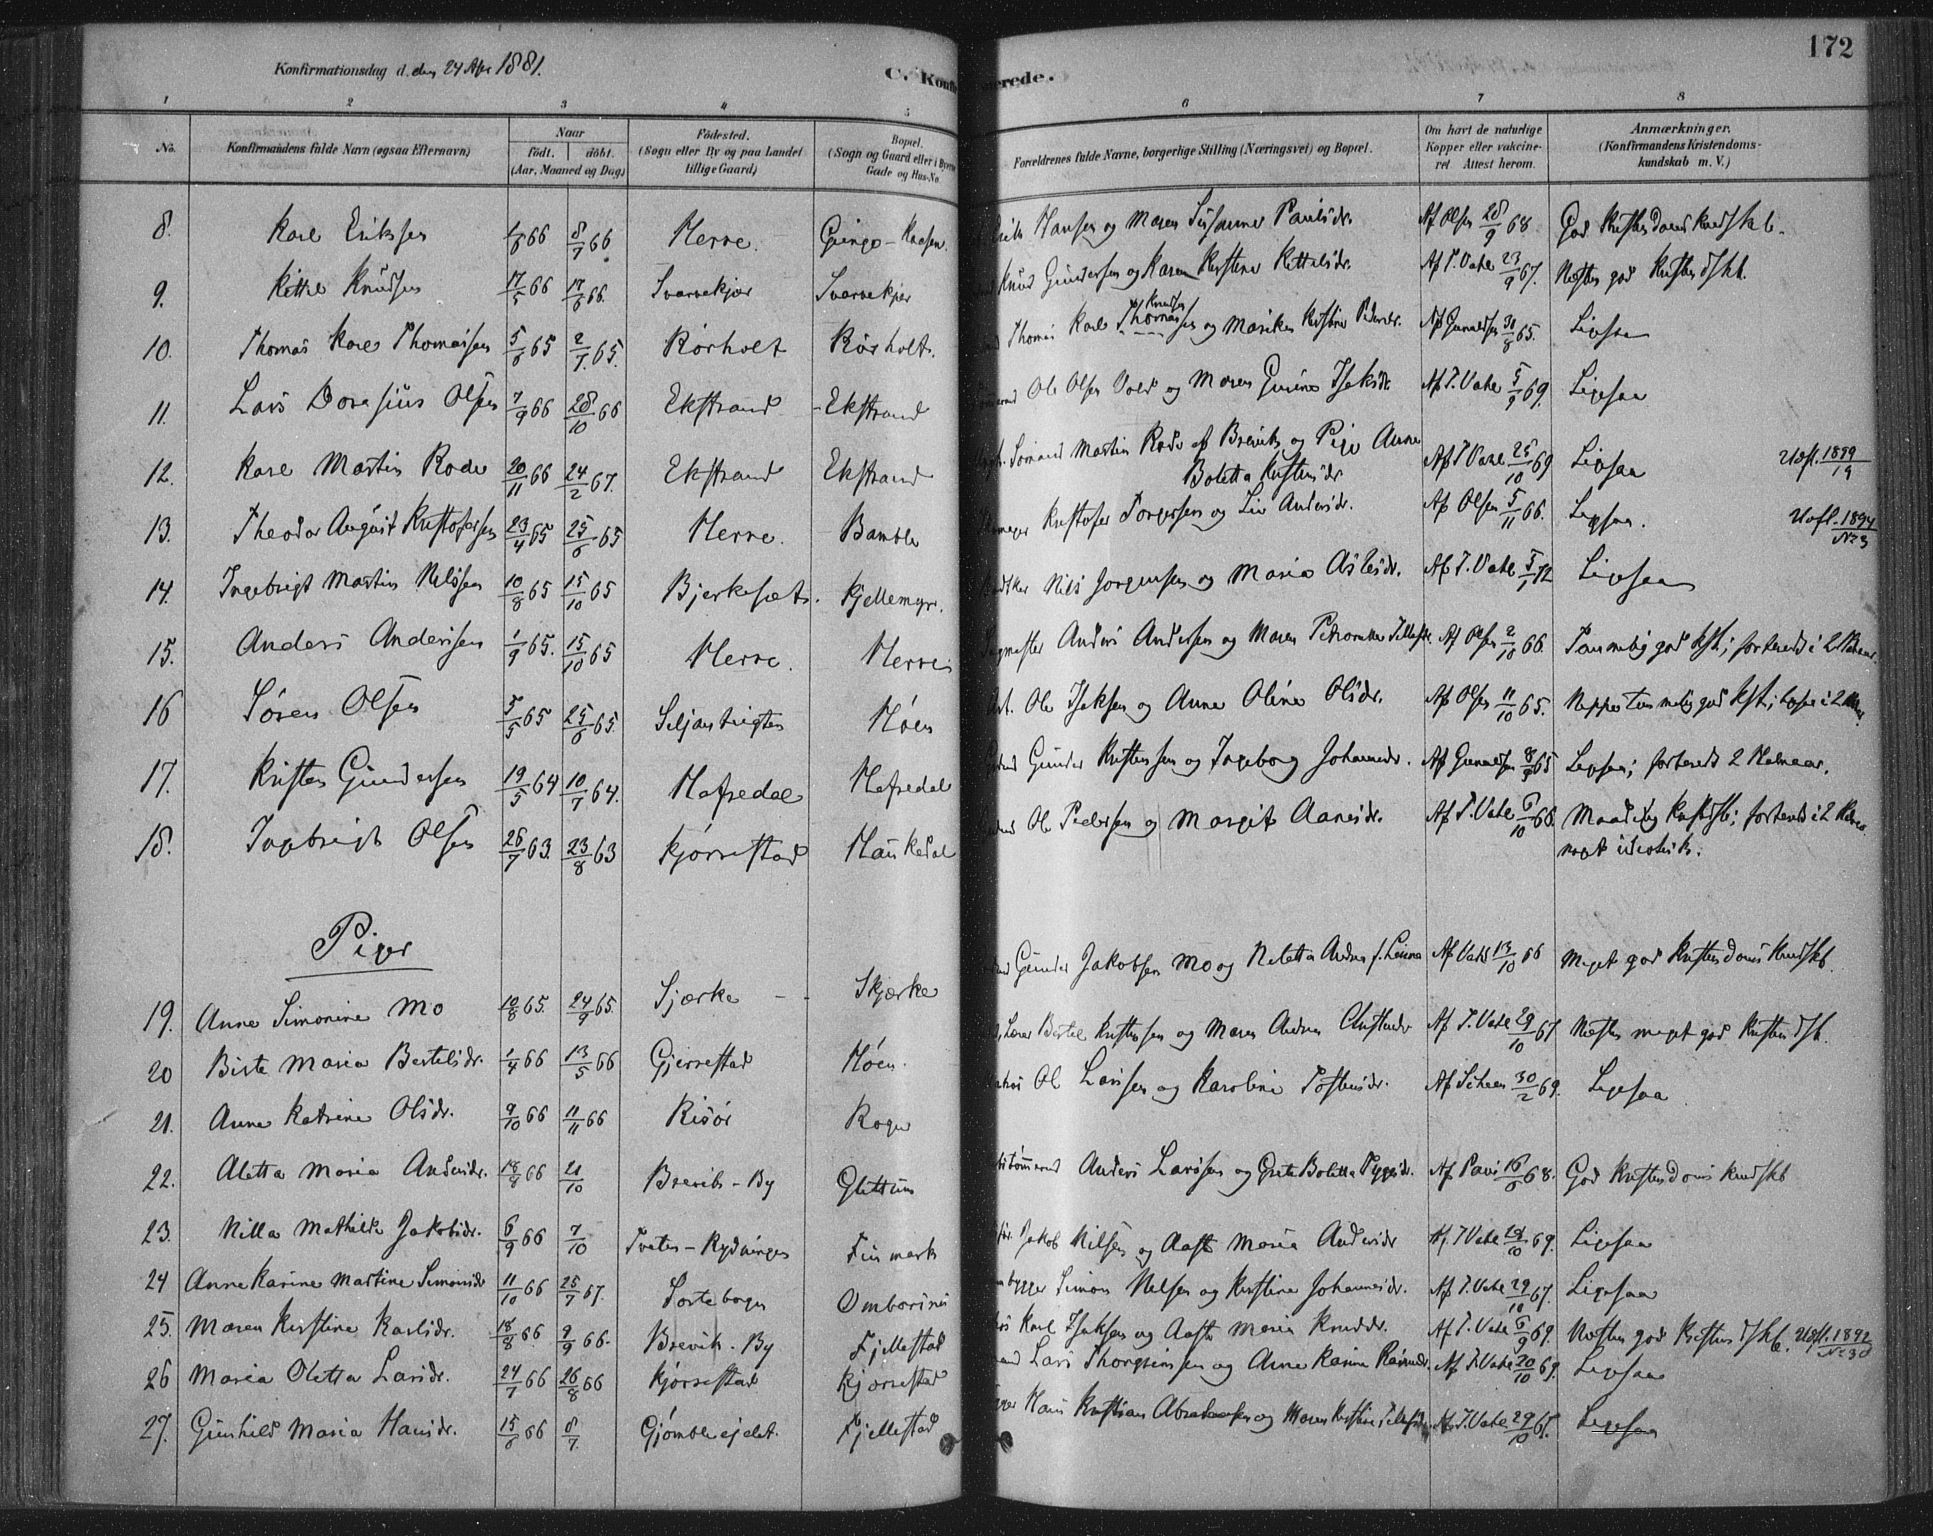 Konfirmationsdag d. den 24 Apr 1881.
C. Konfirmerede.
172
1 2 3 4 5 6 7 8
No. Konfirmandens fulde Navn (ogsaa Efternavn) Naar födt. döbt. (Aar, Maaned og Dag) Födested. (Sogn eller By og paa Landet tillige Gaard) Bopæl. (Sogn og Gaard eller i Byerne Gade og Hus-No Forældrenes fulde Navne, borgerlige Stilling (Næringsvei) og Bopæl. Om havt de naturlige Kopper eller vakcineret Attest herom. Anmærkninger. (Konfirmandens Kristendomskundskab m. V.)
8. Karl Eriksen 1/6 66 8/7 66 Herre Erik Hansen og Maren Susanne Paulsdr. Af Olsen 28/9 68 God Kristendomskndskb.
9. Kittil Knudsen 17/5 66 17/6 66. Svarvekjær Svarvekjær Knud Gundersen og Karen Kirstine Kittelsdr. Af J. Vahl 23/9 67. Næsten god Kristendskb.
10. Thomas Karl Thomassen 5/6 65 2/7 65. Rörholt Rörholt. Thomas Karl Knudsen Thomassen og Mariken Kirstine Pedersdr. Af Gunnelsen 31/8 65. Ligesaa
11. Lars Doresius Olsen 7/9 66 28/10 66 Ekstrand Ekstrand Ole Olsen Vold og Maren Gurine Isaksdr. Af J. Vahl 5/9 69. Ligesaa
12. Karl Martin Rode 20/11 66 24/2 67. Ekstrand Ekstrand Sömand Martin Rode af Brevik og Pige Anne Boletta Kristensdr Af J. Vahl 25/10 69 Ligesaa Udfl. 1899/19
13. Theodor August Kristofersen 23/4 65 25/6 65 Herre. Bamble Kristofer Torgersen og Liv Andersdr. Af Olsen 5/11 66. Ligesaa. Udfl. 1894/No 3
14. Ingebrigt Martin Nilsen 10/8 65 15/10 65 Bjerkesæt. Kjellemyr. Nils Jörgensen og Maria Aslesdr. Af J. Vahl 5/1 72 Ligesaa
15. Anders Andersen 1/9 65. 15/10 65 Herre. Herre Sagmester Anders Andersen og Maren Petronelle Tollefsdr. Af Olsen 2/10 66. Temmelig god kstd; forberedt i 2 Halvaar.
16 Sören Olsen 5/5 65 25/6 65. Höen Ole Isaksen og Anne Oline Olsdr. Af Olsen 11/10 65. Neppe temmelig god kstd; læst i 2 Halv.
17. Kristen Gundersen 19/5 64 10/7 64. Hafsedal Hafsedal Gunder Kristensen og Ingeborg Johannesdr. Af Gunnelsen 8/9 65 Ligesaa; forberedt 2 Halvaar.
18. Ingebrigt Olsen 26/7 63. 23/8 63 Kjörrestad Haukedal Ole Pedersen og Margit Aanesdr. Af J. Vahl 6/10 66. Maadelig Kristdskb; forberedt i 2 Halva. noget idiotisk.
Piger
19. Anne Simonine Mo 10/8 65. 24/9 65. Sjærke Skjærke Gunder Jakobsen Mo og Neletta Andrea f. Leina Af Vahl 13/10 66 Meget god Kristendoms Kndskb.
20 Birte Maria Bertelsdr. 1/4 66 13/5 66 Gjerrestad Höen. Lærer Bertel Kristensen og Maren Andrea Christensdr Af J. Vahl 29/10 67 Næsten meget god Kristendskb.
21. Anne Katrine Olsdr. 9/10 66 11/11 66 Risör Rogn Ole Larsen og Karoline Tostensdr. Af Scheen 30/2 69. Ligesaa
22. Aletta Maria Andersdr. 18/8 66 21/10 Brevik - By Glittum Anders Larsen og Grete Boletta Tyggesdr. Af Pavi 16/6 68. God Kristendoms Kndskb
23. Nilla Mathilde Jakobsdr. 6/9 66 7/10 Tveten - Rydningen Finmark Jakob Nilsen og Aaste Maria Andersdr Af. J Vahl 29/10 69. Ligesaa
24 Anne Karine Martine Simonsdr 11/10 66 25/7 67. Sortebogen Omborsnes Simon Nilsen og Kirstine Johannesdr. Af J. Vahl 29/10 67. Ligesaa
25. Maren Kirstine Karlsdr. 18/8 66 9/9 66. Brevik - By Fjellestad Karl Isaksen og Aaste Maria Knudsdr. Af J. Vahl 6/9 69. Næsten god Kristendskb. Udfl. 1892/No 30
26 Maria Oletta Larsdr. 24/7 66 26/8 66 Kjörrestad Kjørrestad Lars Thorgrimsen og Anne Karine Rasmusdr. Af J. Vahl 20/10 69. Ligesaa
27. Gunhild Maria Hansdr. 15/6 66 8/7. Gjömleejdet. Fjellestad Hans Kristian Abrahamsen og Maren Kirstine Tollefsdr. Af J. Vahl 29/10 65. Ligesaa